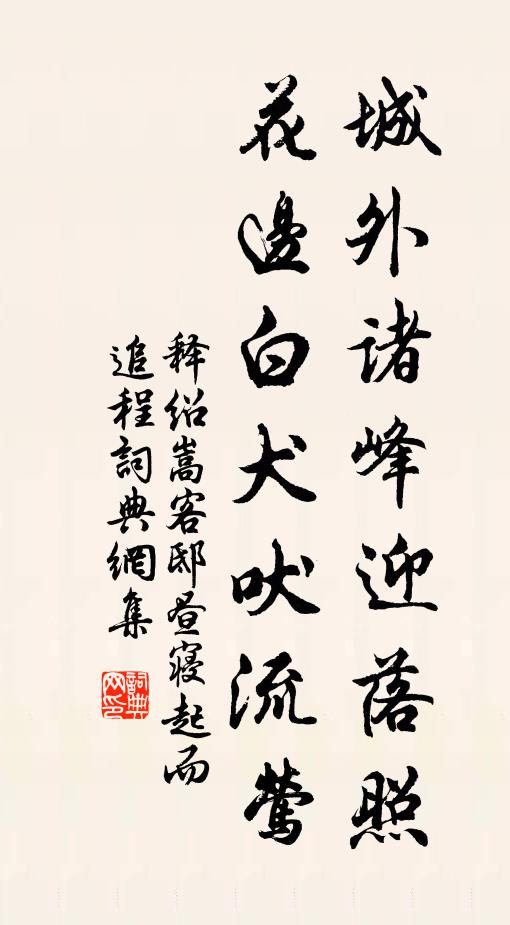 城外諸峰迎落照
花邊白犬吠流鶯
释绍嵩客邸昼寝起而
追程詞典網集
詞典網印